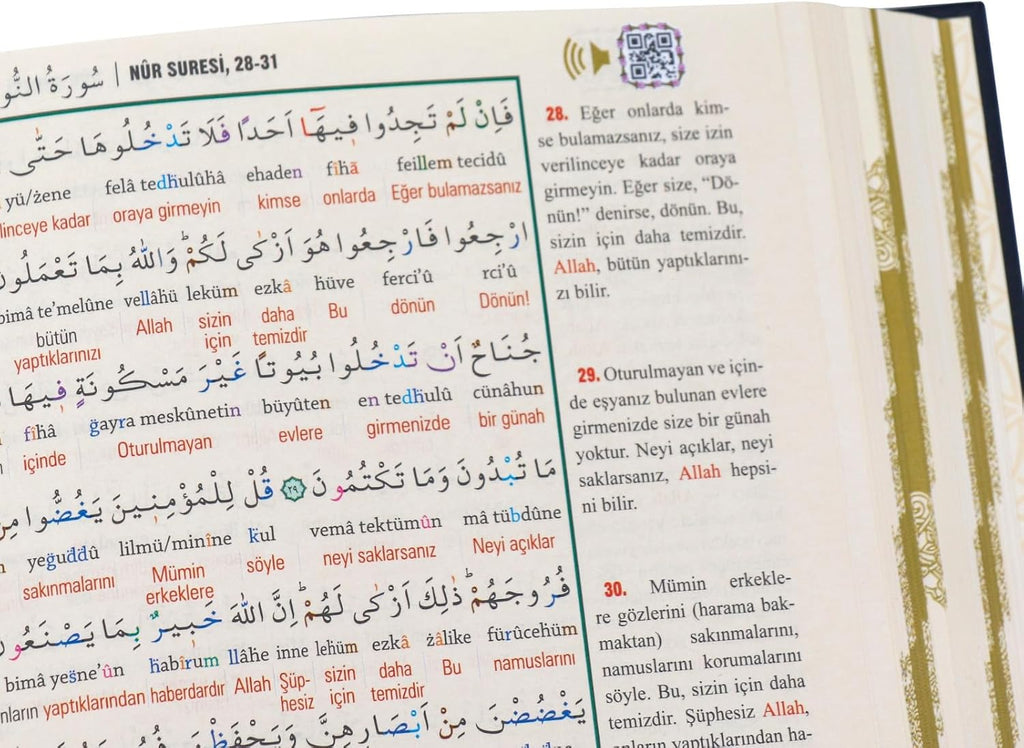 سُورَةُ النُّو | NÛR SURESİ, 28-31
فَاِنْ لَمْ تَجِدُوا فٖيهَٓا اَحَدًا فَلَا تَدْخُلُوهَا حَتّٰى
feillem tecidû fîhâ ehaden felâ tedhulûhâ yü/zene
Eğer bulamazsanız onlarda kimse oraya girmeyin linceye kadar
ارْجِعُوا فَارْجِعُوا هُوَ اَزْكٰى لَكُمْ وَاللّٰهُ بِمَا تَعْمَلُونَ
rci’û ferci’û hüve ezkâ leküm vellâhü bimâ te’melûne
Dönün! dönün Bu daha temizdir sizin için Allah bütün yaptıklarınızı
جُنَاحٌ اَنْ تَدْخُلُوا بُيُوتًا غَيْرَ مَسْكُونَةٍ فٖيهَا
cünâhun en tedhulû büyûten ğayra meskûnetin fîhâ
bir günah girmenizde evlere Oturulmayan içinde
مَا تُبْدُونَ وَمَا تَكْتُمُونَ ٢٩ قُلْ لِلْمُؤْمِنٖينَ يَغُضُّوا مِنْ
mâ tübdûne vemâ tektümûn kul lilmü/minîne yeğuddû
Neyi açıklar neyi saklarsanız söyle Mümin erkeklere sakınmalarını
فُرُوجَهُمْ ذٰلِكَ اَزْكٰى لَهُمْ اِنَّ اللّٰهَ خَبٖيرٌ بِمَا يَصْنَعُونَ
fürûcehüm zâlike ezkâ lehüm inne llâhe habîrum bimâ yesne’ûn
namuslarını Bu daha temizdir sizin için Şüp-hesiz Allah haberdardır yaptıklarından
يَغْضُضْنَ مِنْ اَبْصَارِهِنَّ وَيَحْفَظْنَ
28. Eğer onlarda kim-
se bulamazsanız, size izin
verilinceye kadar oraya
girmeyin. Eğer size, “Dö-
nün!” denirse, dönün. Bu,
sizin için daha temizdir.
Allah, bütün yaptıklarını-
zı bilir.
29. Oturulmayan ve için-
de eşyanız bulunan evlere
girmenizde size bir günah
yoktur. Neyi açıklar, neyi
saklarsanız, Allah hepsi-
ni bilir.
30. Mümin erkekle-
re gözlerini (harama bak-
maktan) sakınmalarını,
namuslarını korumalarını
söyle. Bu, sizin için daha
temizdir. Şüphesiz Allah,
onların yaptıklarından ha-